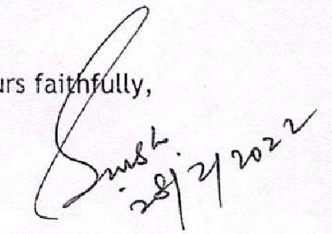 urs faithfully,
28/2/2022